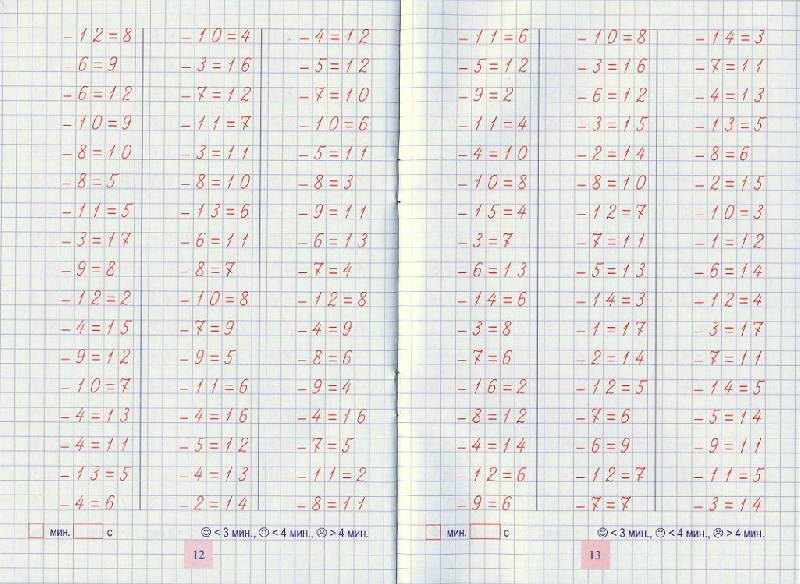 -12=8 -10=4 -4=12
-6=9 -3=16 -5=12
-6=12 -7=12 -7=10
-10=9 -11=7 -10=6
-8=10 -3=11 -5=11
-8=5 -8=10 -8=3
-11=5 -13=6 -9=11
-3=17 -6=11 -6=13
-9=8 -8=7 -7=4
-12=2 -10=8 -12=8
-4=15 -7=9 -4=9
-9=12 -9=5 -8=6
-10=7 -11=6 -9=4
-4=13 -4=16 -4=16
-4=11 -5=12 -7=5
-13=5 -4=13 -11=2
-4=6 -2=14 -8=11
мин. с ☺ < 3 мин., < 4 мин., ☹ > 4 мин.
12
-11=6 -10=8 -14=3
-5=12 -3=16 -7=11
-9=2 -6=12 -4=13
-11=4 -3=15 -13=5
-4=10 -2=14 -8=6
-10=8 -8=10 -2=15
-15=4 -12=7 -10=3
-3=7 -7=11 -1=12
-6=13 -5=13 -6=14
-14=6 -14=3 -12=4
-3=8 -1=17 -3=17
-7=6 -2=14 -7=11
-16=2 -12=5 -14=5
-8=12 -7=6 -5=14
-4=14 -6=9 -9=11
-12=6 -12=7 -11=5
-9=6 -7=7 -3=14
мин. с ☺ < 3 мин., < 4 мин., ☹ > 4 мин.
13